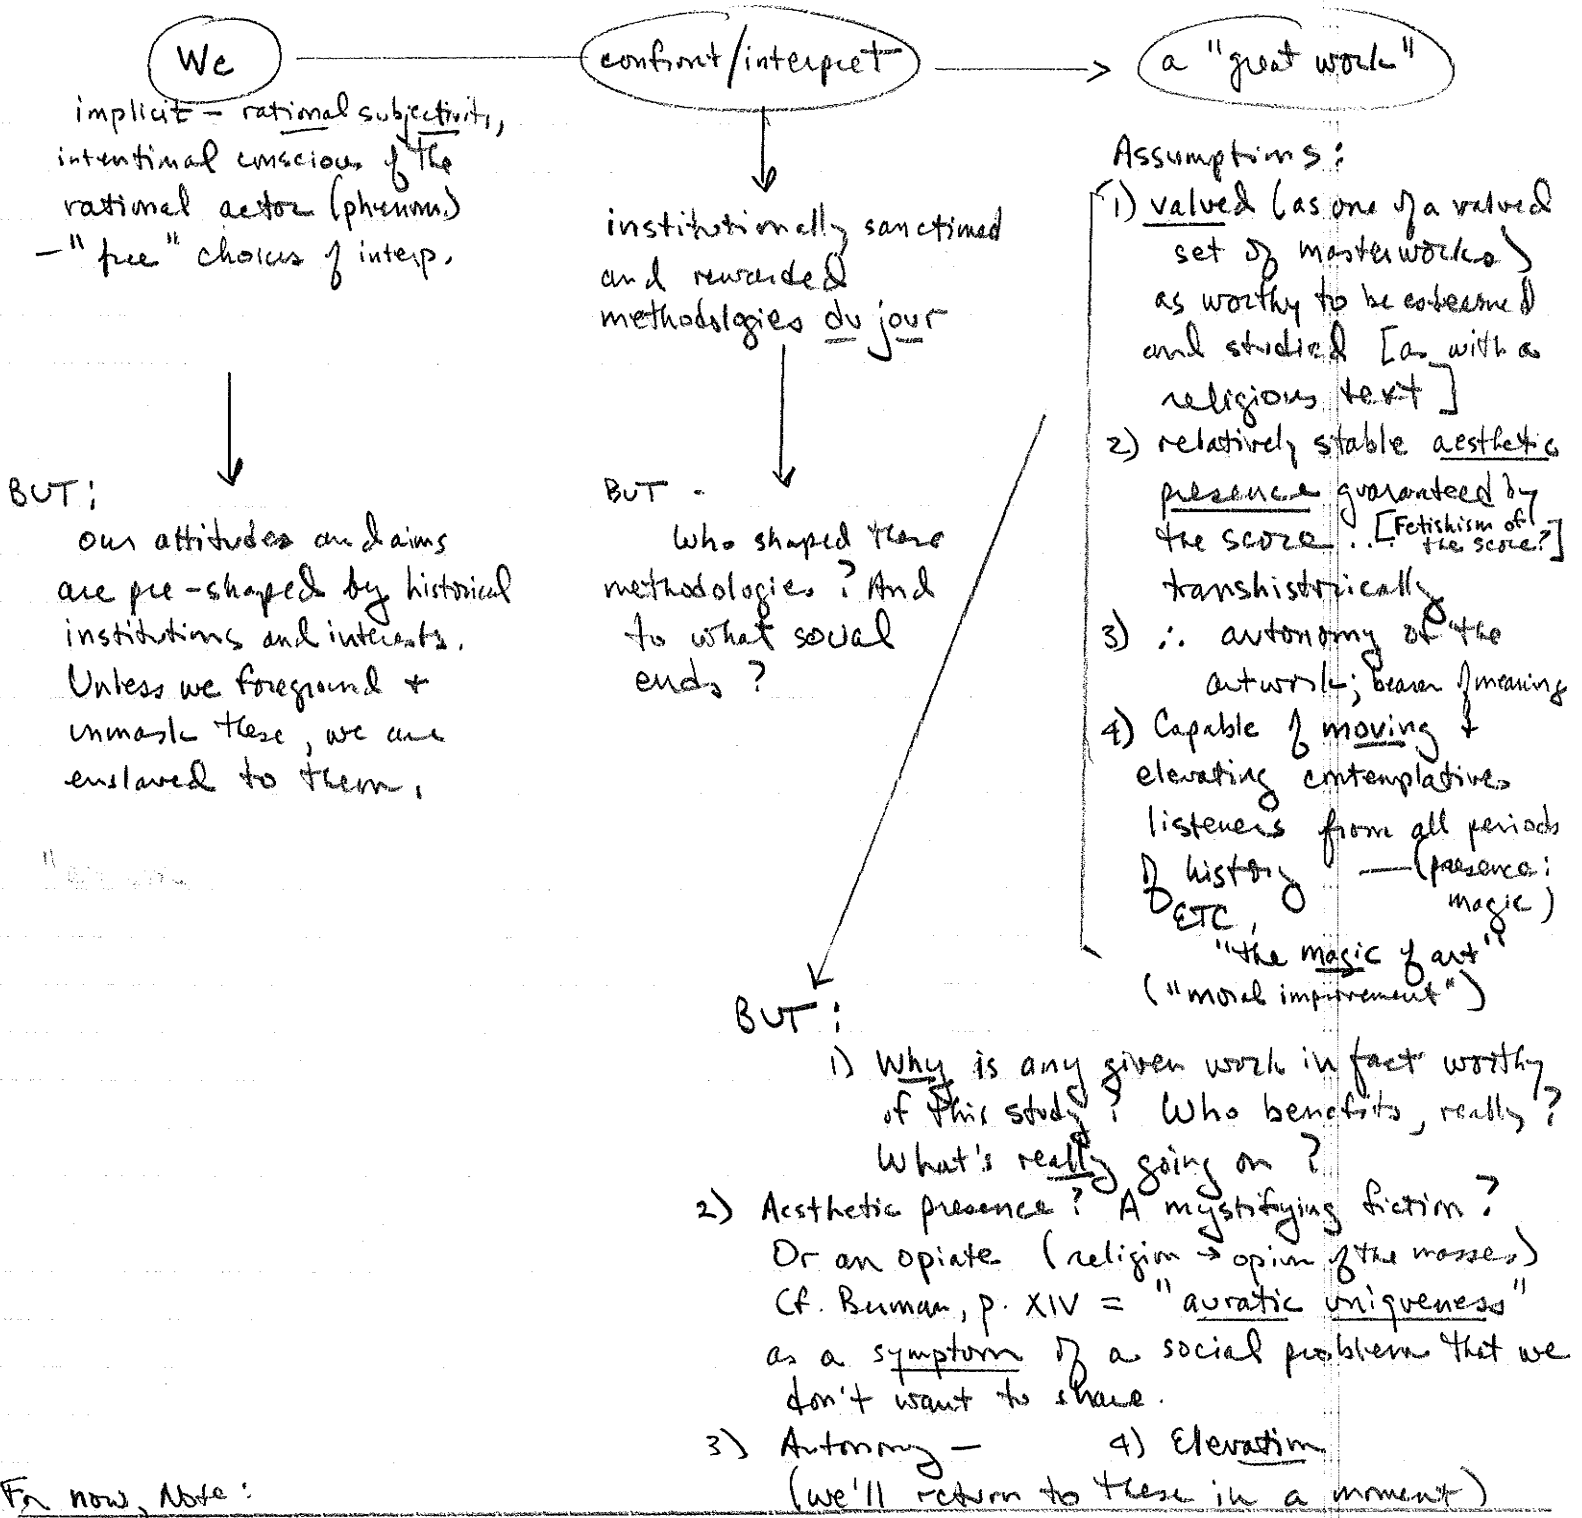 We
confront/interpret
a "great work"
implicit – rational subjectivity,
intentional conscious. of the
rational actor (phenom.)
– "free" choices of interp.
BUT:
our attitudes and aims
are pre-shaped by historical
institutions and interests.
Unless we foreground +
unmask these, we are
enslaved to them.
institutionally sanctioned
and rewarded
methodologies du jour
BUT -
Who shaped these
methodologies? And
to what social
ends?
Assumptions:
1) valued (as one of a valued
set of masterworks)
as worthy to be esteemed
and studied [as with a
religious text]
2) relatively stable aesthetic
presence guaranteed by
the score... [Fetishism of
the score?]
transhistorically
3) ∴ autonomy of the
artwork; bearer of meaning
4) Capable of moving +
elevating contemplative
listeners from all periods
of history — (presence:
magic)
ETC.
"the magic of art"
("moral improvement")
BUT:
1) Why is any given work in fact worthy
of this study? Who benefits, really?
What's really going on?
2) Aesthetic presence? A mystifying fiction?
Or an opiate (religion → opium of the masses)
Cf. p. XIV = "auratic uniqueness"
as a symptom of a social problem that we
don't want to share.
3) Autonomy – 4) Elevation
(we'll return to these in a moment)
For now, Note: